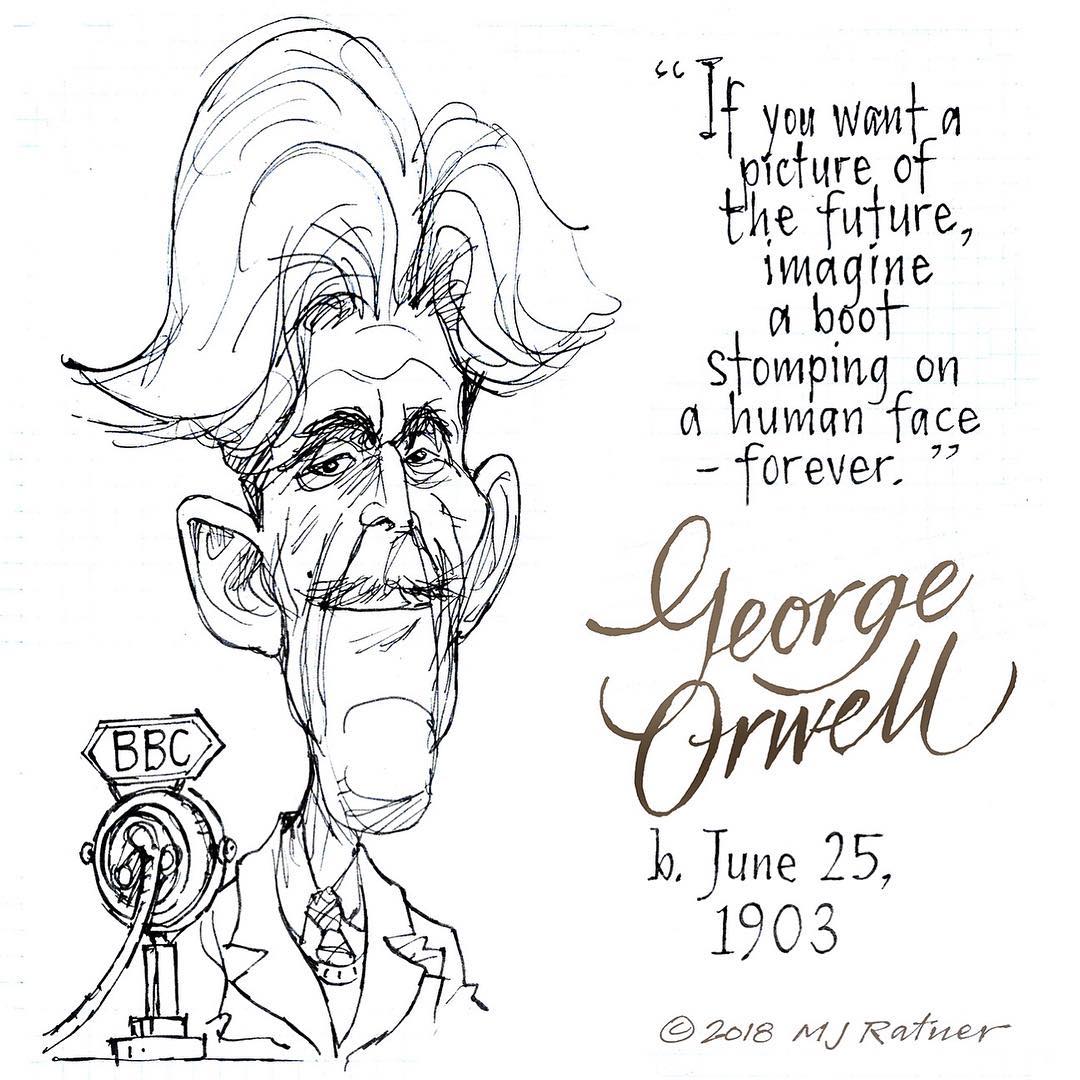 BBC
“If you want a
picture of
the future,
imagine
a boot
stomping on
a human face
- forever.”
George
Orwell
b. June 25,
1903
© 2018 MJ Ratner